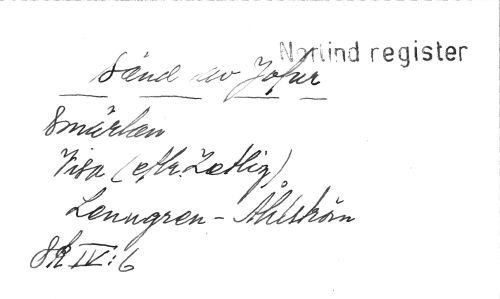 Norlind register
Sänd av Jofur
Smärtan
Visa (eftr. Zetlig)
Lenngren - Åhlström
SK IV:6